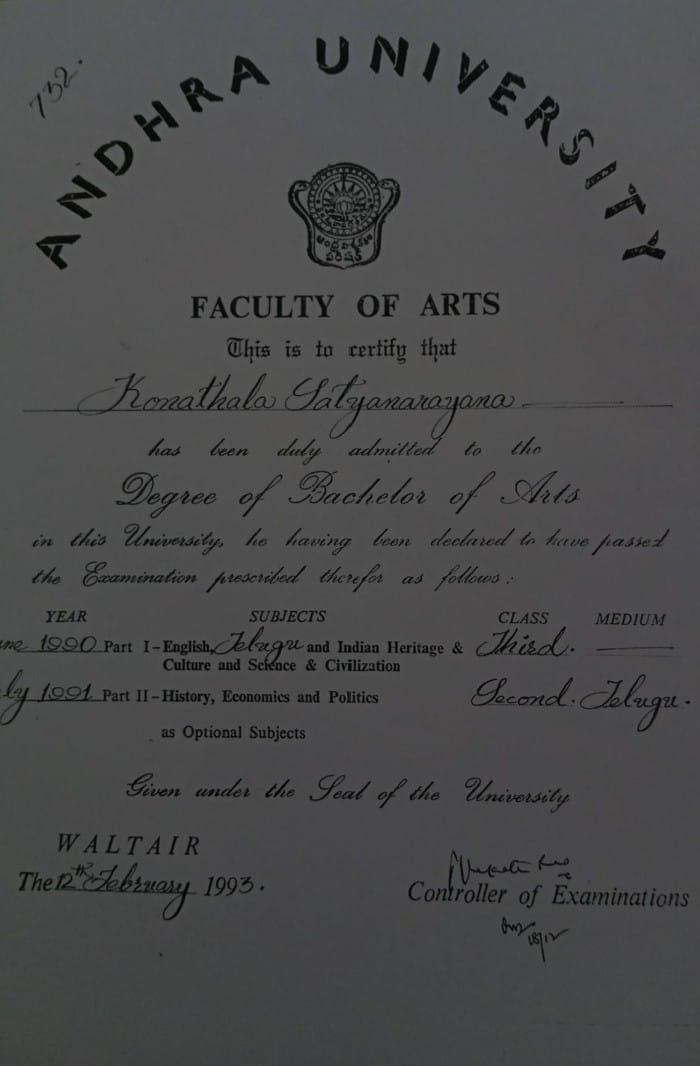 732.
ANDHRA UNIVERSITY
ఆంధ్ర విశ్వకళా
పరిషత్
FACULTY OF ARTS
This is to certify that
Konathala Satyanarayana
has been duly admitted to the
Degree of Bachelor of Arts
in this University, he having been declared to have passed
the Examination prescribed therefor as follows:
YEAR SUBJECTS CLASS MEDIUM
ne 1990 Part I - English, Telugu and Indian Heritage & Third.
Culture and Science & Civilization
ly 1991 Part II - History, Economics and Politics Second. Telugu.
as Optional Subjects
Given under the Seal of the University
WALTAIR
The 12th February 1993.
Controller of Examinations
18/12